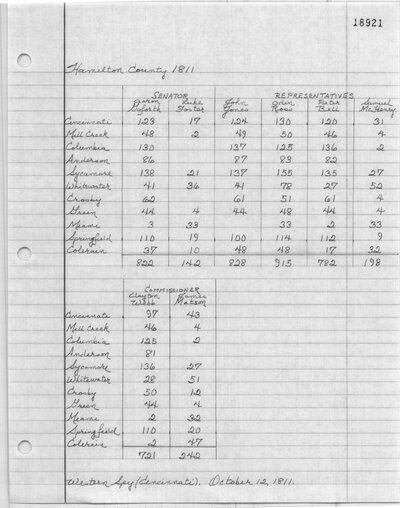 18921
Hamilton County 1811
SENATOR REPRESENTATIVES
Aaron Goforth Luke Foster John Jones Ogden Ross Peter Bell Samuel McHenry
Cincinnati 123 17 124 130 120 31
Mill Creek 48 2 49 50 46 4
Columbia 130 137 125 136 2
Anderson 86 87 83 82
Sycamore 138 21 137 155 135 27
Whitewater 41 36 41 78 27 52
Crosby 62 61 51 61 4
Green 44 4 44 48 44 4
Miami 3 33 33 2 33
Springfield 110 19 100 114 112 9
Colerain 37 10 48 48 17 32
822 142 828 915 782 198
COMMISSIONER
Clayton Webb James Matson
Cincinnati 97 43
Mill Creek 46 4
Columbia 125 2
Anderson 81
Sycamore 136 27
Whitewater 28 51
Crosby 50 12
Green 44 4
Miami 2 32
Springfield 110 20
Colerain 2 47
721 242
Western Spy (Cincinnati). October 12, 1811.